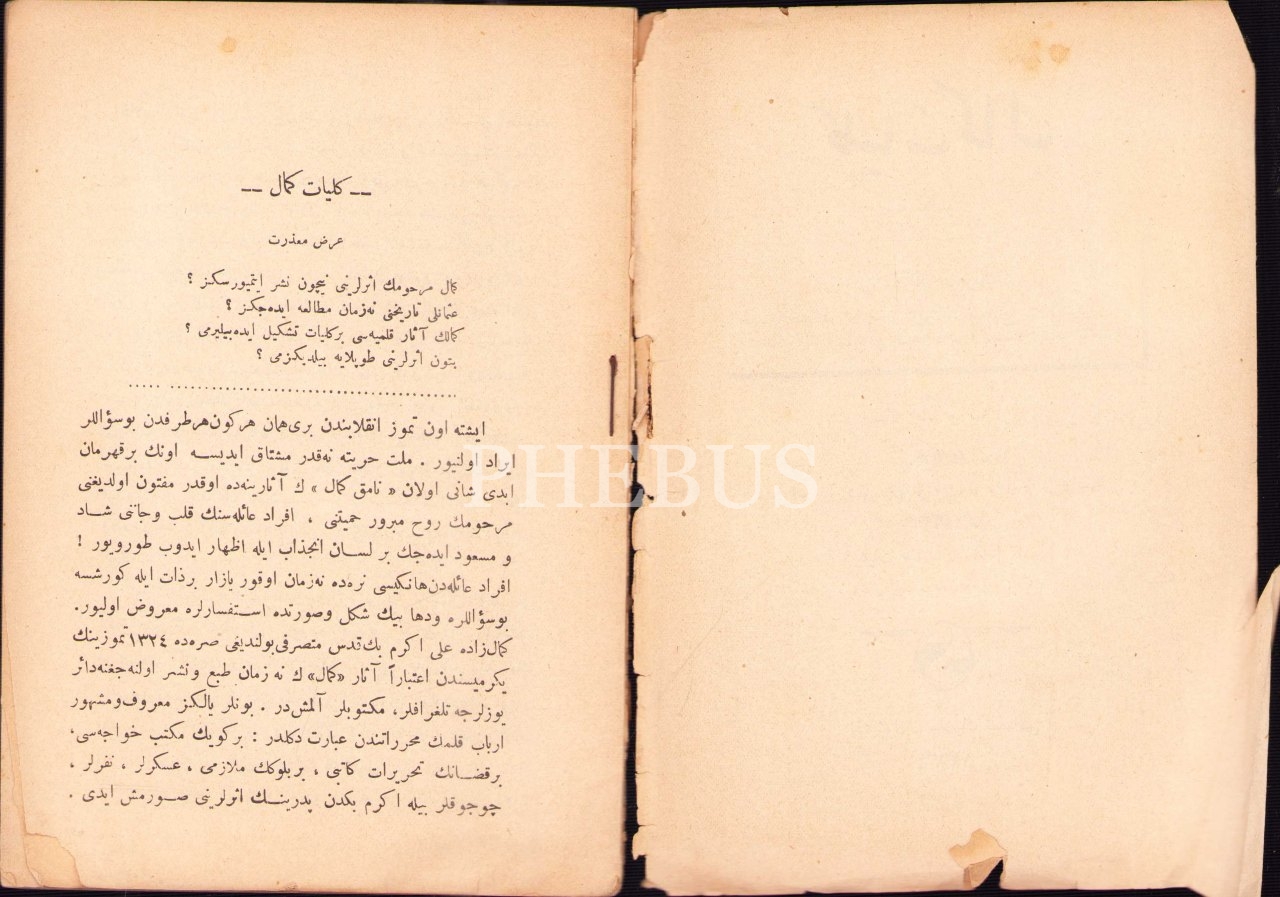 — كليات كمال —
عرض معذرت
كمال مرحومك اثرلرينى نيچون نشر ايتميورسكز ؟
عثمانلى تاريخنى نه‌زمان مطالعه ايده‌جكز ؟
كمالك آثار قلميه‌سى بركليات تشكيل ايده‌بيليرمى ؟
بتون اثرلرينى طوپلايه بيلديكزمى ؟
ايشته اون تموز انقلابندن برى‌همان هركون‌هرطرفدن بوسؤاللر
ايراد اولنيور . ملت حريته نه‌قدر مشتاق ايديسه اونك برقهرمان
ابدى شانى اولان « نامق كمال » ك آثارينه‌ده اوقدر مفتون اولديغنى
مرحومك روح مبرور حميتنى ، افراد عائله‌سنك قلب وجاننى شاد
و مسعود ايده‌جك بر لسان انجذاب ايله اظهار ايدوب طورويور !
افراد عائله‌دن‌هانكيسى نره‌ده نه‌زمان اوقور يازار برذات ايله كورشسه
بوسؤاللره ودها بيك شكل وصورتده استفسارلره معروض اوليور.
كمال‌زاده على اكرم بك‌قدس متصرفى‌بولنديغى صره‌ده ١٣٢٤تموزينك
يكرميسندن اعتباراً آثار «كمال» ك نه زمان طبع ونشر اولنه‌جغنه‌دائر
يوزلرجه تلغرافلر، مكتوبلر آلمش‌در . بونلر يالكيز معروف‌ومشهور
ارباب قلمك محرراتندن عبارت دكلدر : بركويك مكتب خواجه‌سى،
برقضانك تحريرات كاتبى ، بربلوكك ملازمى ، عسكرلر ، نفرلر ،
چوجوقلر بيله اكرم بكدن پدرينك اثرلرينى صورمش ايدى .
PHEBUS